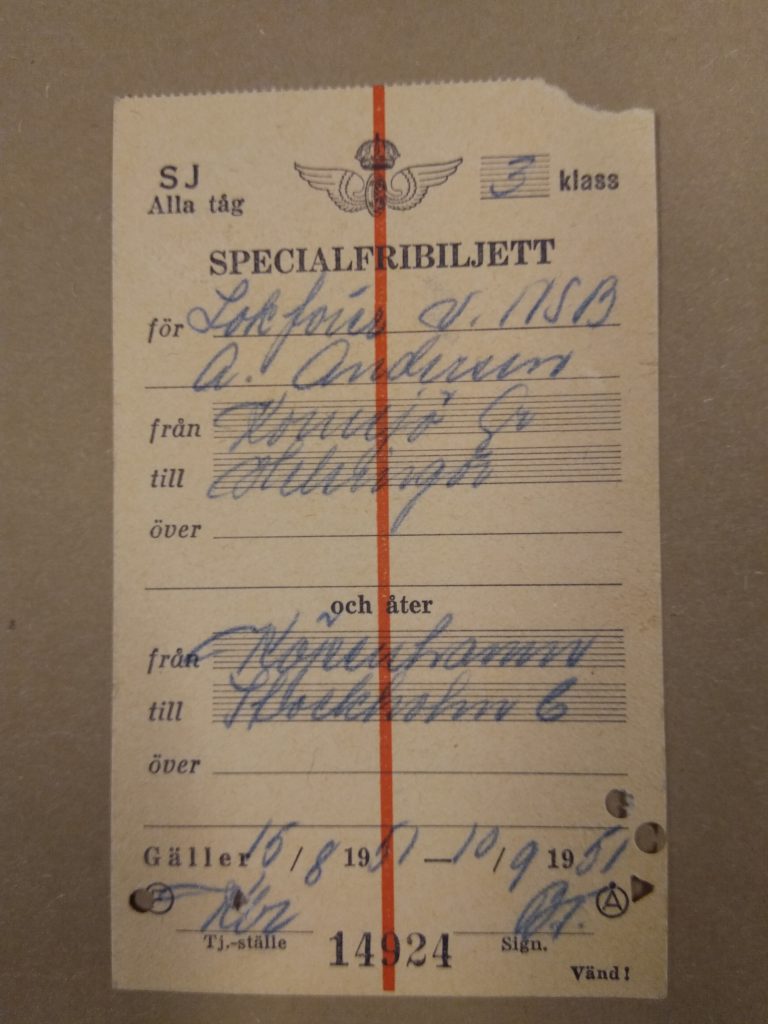 SJ
Alla tåg
3 klass
SPECIALFRIBILJETT
för Lokförer v. NSB
A. Andersen
från Kornsjö Gr
till Helsingör
över
och åter
från Köpenhamn
till Stockholm C
över
Gäller 15/8 1951 — 10/9 1951
F
Kbr
Å
Tj.-ställe
14924
Sign.
Vänd!